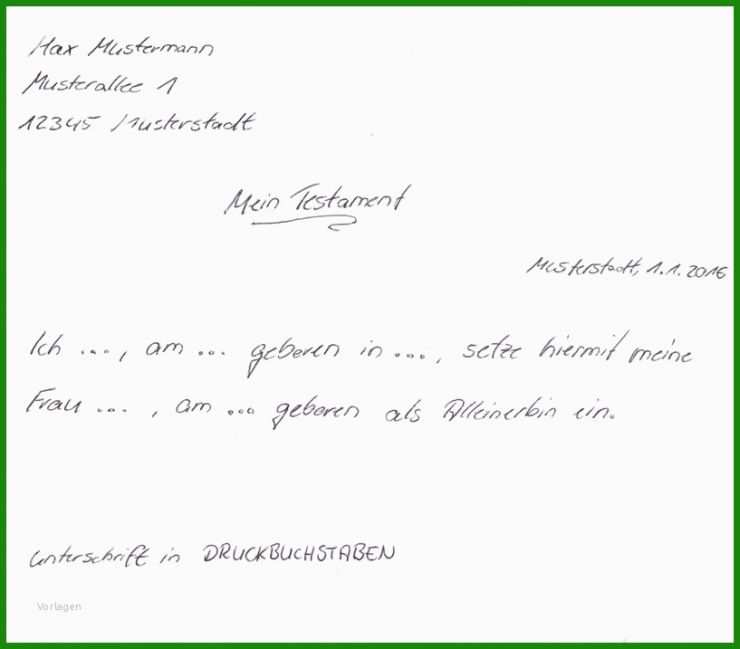 Max Mustermann
Musterallee 1
12345 Musterstadt
Mein Testament
Musterstadt, 1.1.2016
Ich ..., am ... geboren in ..., setze hiermit meine
Frau ... , am ... geboren als Alleinerbin ein.
Unterschrift in DRUCKBUCHSTABEN
Vorlagen